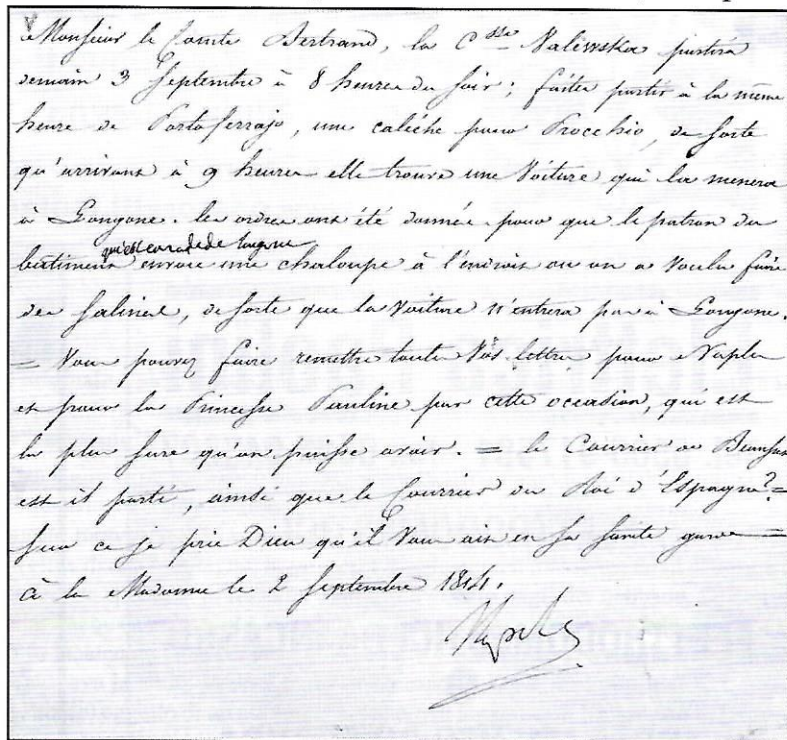 Monsieur le Comte Bertrand, la Csse Valewska partira
demain 3 Septembre à 8 heures du soir ; faites partir à la même
heure de Portoferrajo, une calèche pour Procchio, de sorte
qu'arrivant à 9 heures elle trouve une Voiture qui la menera
à Longone. les ordres ont été donnés pour que le patron du
qui est en rade de Longone
batiment envoie une chaloupe à l'endroit ou on a voulu faire
des Salines, de sorte que la Voiture n'entrera pas à Longone.
= Vous pouvez faire remettre toutes Vos lettres pour Naples
et pour la Princesse Pauline par cette occasion, qui est
la plus sure qu'on puisse avoir. = le Courrier de
est il parti, ainsi que le Courrier du Roi d'Espagne? =
sur ce je prie Dieu qu'il Vous ait en sa sainte garde =
à la Madonne le 2 Septembre 1814.